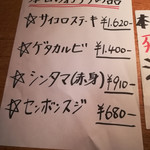 ☆サイコロステーキ ¥1.620-
☆ゲタカルビ ¥1.400-
☆シンタマ(赤身) ¥910-
☆センボンスジ ¥680-